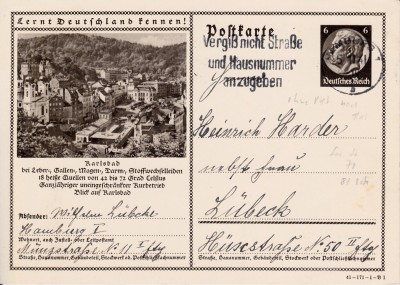 Lernt Deutschland kennen!
Karlsbad
bei Leber-, Gallen-, Magen-, Darm-, Stoffwechselleiden
18 heiße Quellen von 42 bis 72 Grad Celsius
Ganzjähriger uneingeschränkter Kurbetrieb
Blick auf Karlsbad
Absender: Wilhelm Lübcke
Hamburg 1
Wohnort, auch Zustell- oder Leitpostamt
Münzstraße No. 11 I Etg
Straße, Hausnummer, Gebäudeteil, Stockwerk od. Postschließfachnummer
Postkarte
Vergiß nicht Straße
und Hausnummer
anzugeben
6 6
Deutsches Reich
Heinrich Harder
nebst Frau
Lübeck
Hüxstraße No. 50 II Etg
Straße, Hausnummer, Gebäudeteil, Stockwerk oder Postschließfachnummer
41-171-1-B 1